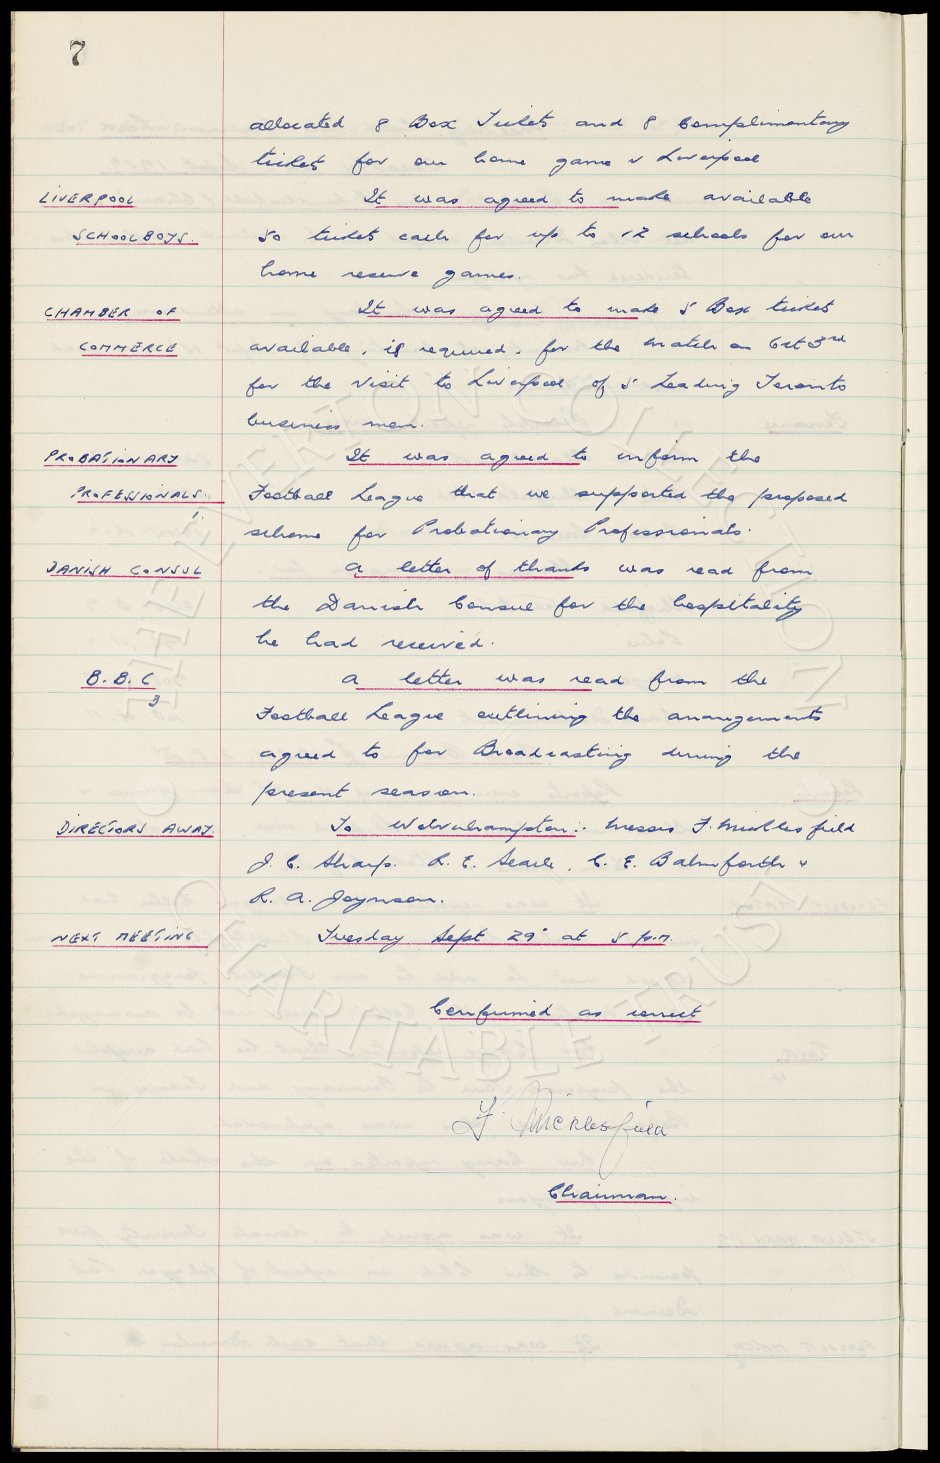 7
allocated 8 Box Tickets and 8 Complimentary
tickets for our home game v Liverpool
LIVERPOOL It was agreed to make available
SCHOOLBOYS. 50 tickets each for up to 12 schools for our
home reserve games.
CHAMBER OF It was agreed to make 5 Box tickets
COMMERCE available, if required, for the match on Oct 3rd
for the visit to Liverpool of 5 Leading Toronto
business men.
PROBATIONARY It was agreed to inform the
PROFESSIONALS. Football League that we supported the proposed
1 scheme for Probationary Professionals.
DANISH CONSUL A letter of thanks was read from
the Danish Consul for the hospitality
he had received.
B.B.C A letter was read from the
3 Football League outlining the arrangements
agreed to for Broadcasting during the
present season.
DIRECTORS AWAY. To Wolverhampton:. Messrs F. Micklesfield
J. C. Sharp. R. E. Searle, C. E. Balmforth &
R. A. Joynson.
NEXT MEETING Tuesday Sept 29° at 5 p.m.
Confirmed as correct
F. Micklesfield
Chairman.
THE EVERTON COLLECTION
CHARITABLE TRUST